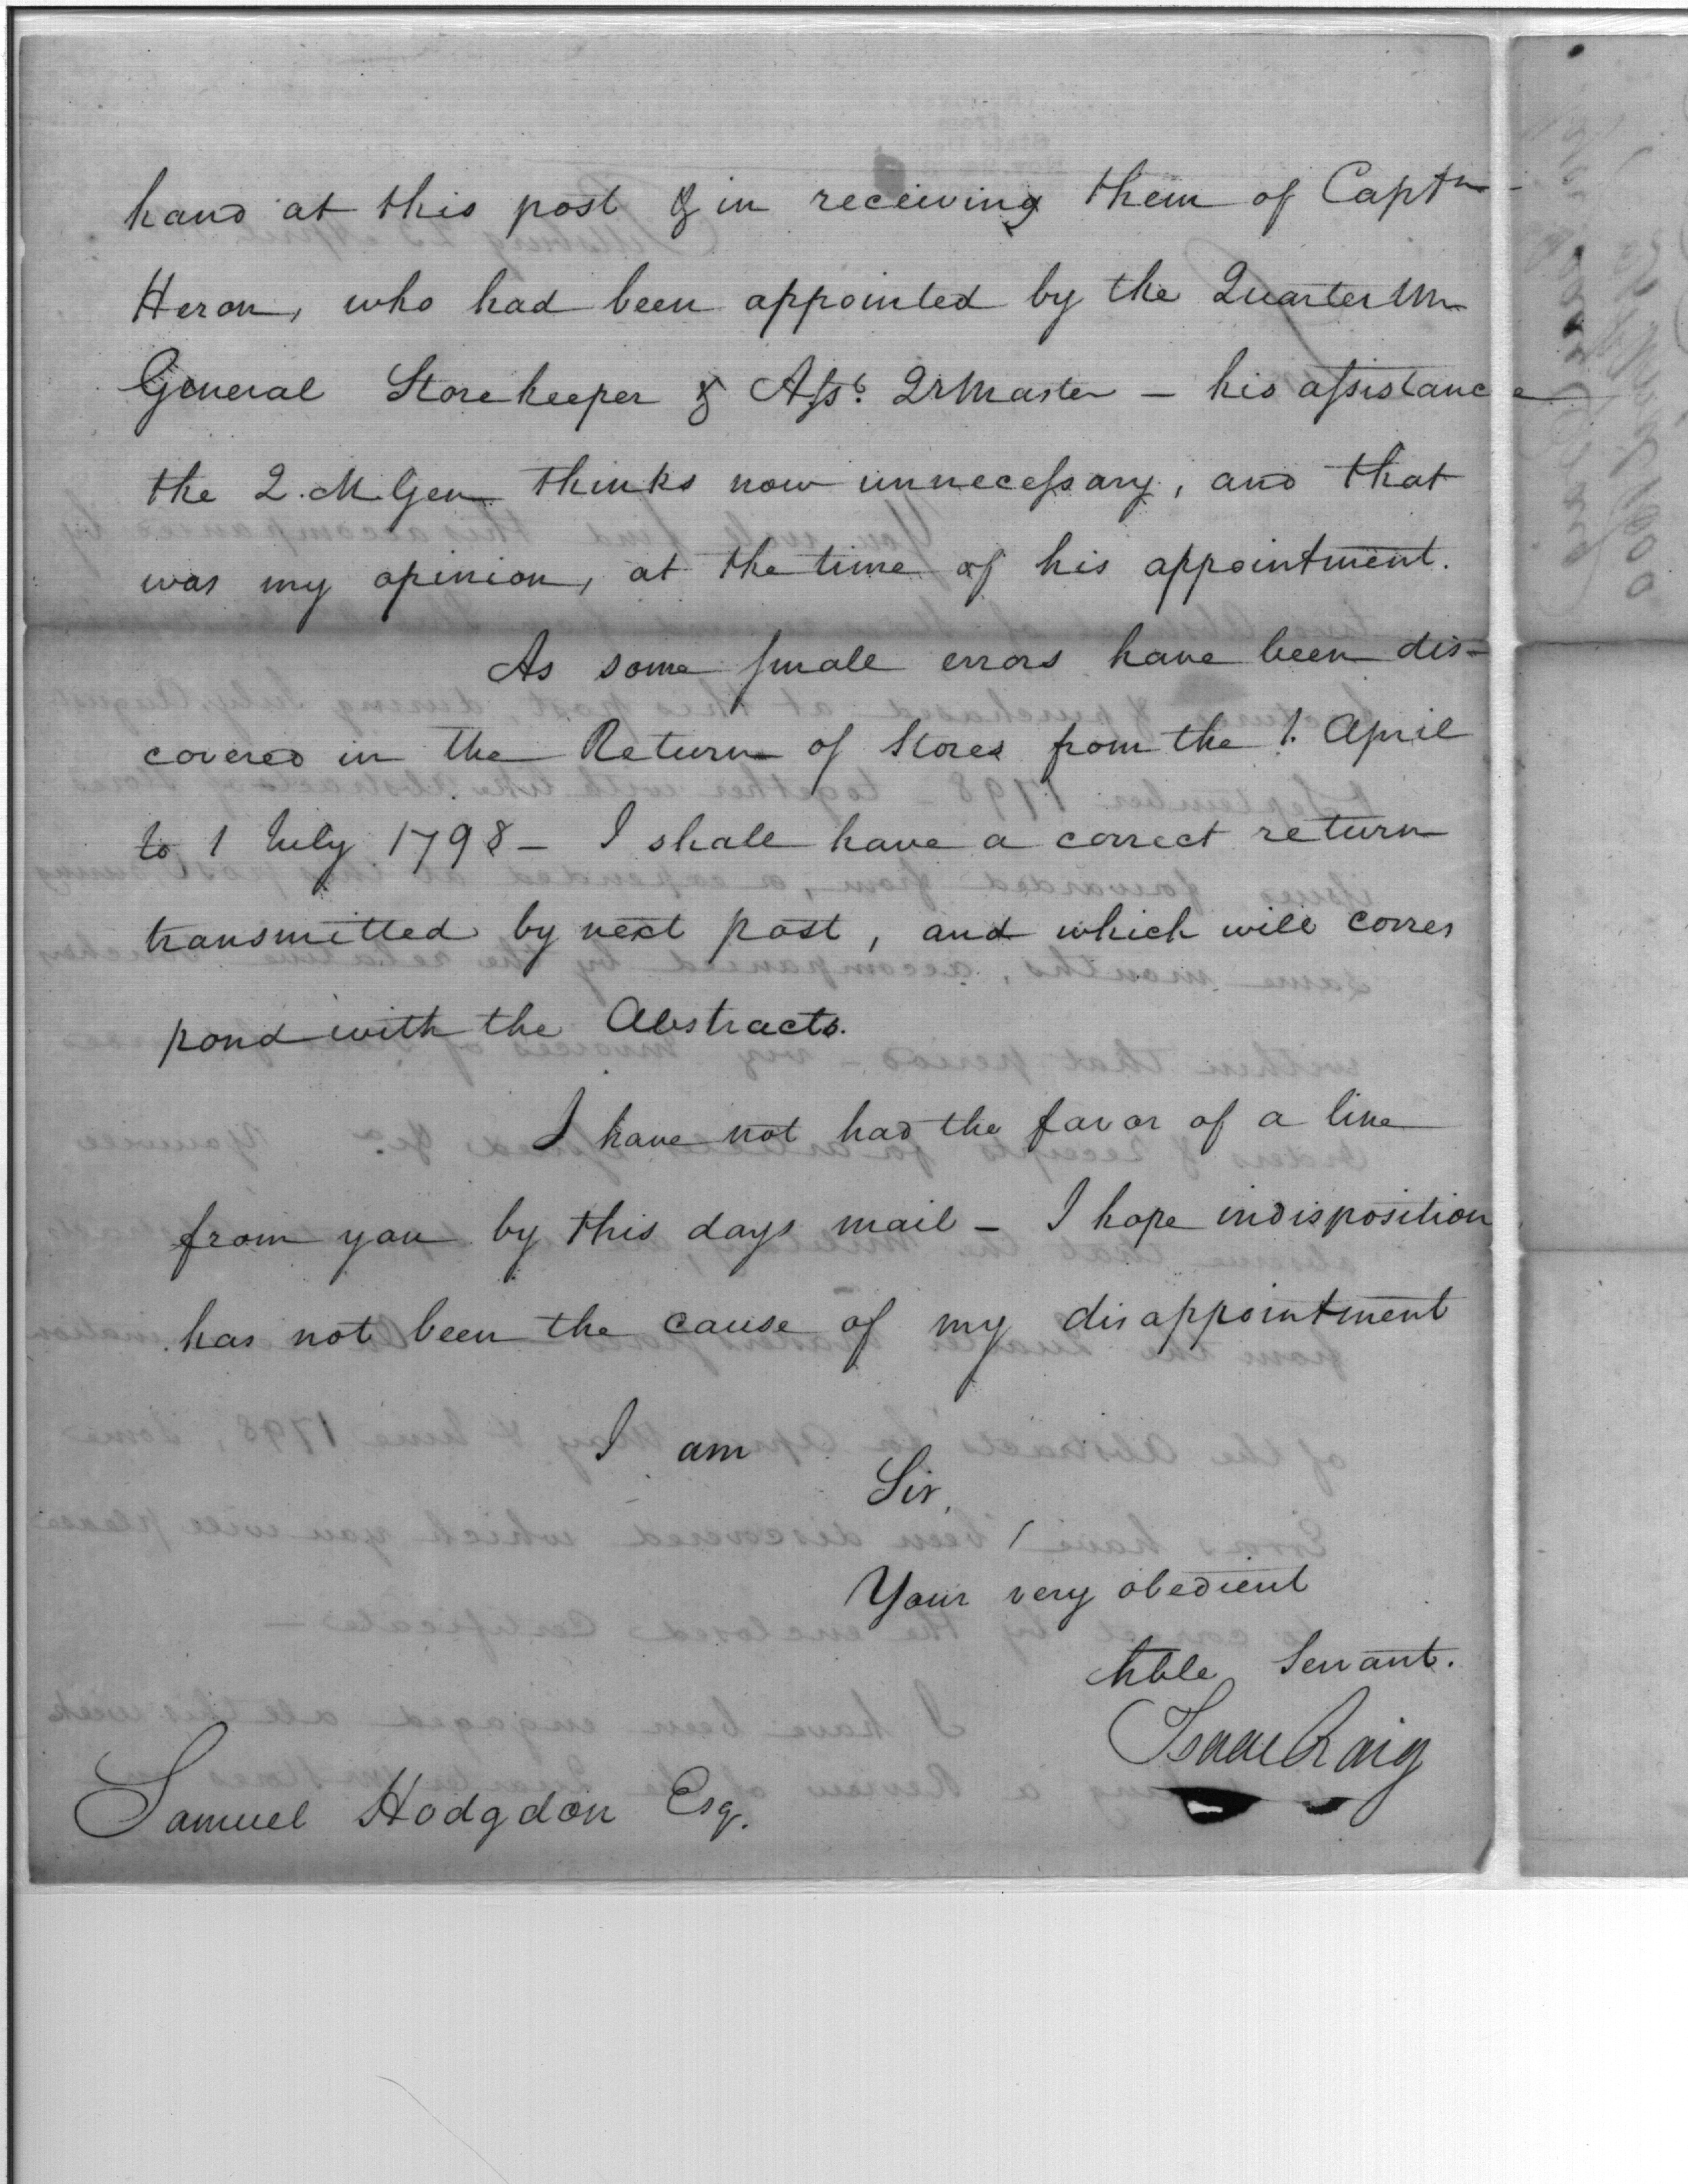 hand at this post & in receiving them of Captn
Heron, who had been appointed by the Quarter Mr
General Storekeeper & Asst. QrMaster – his assistance
the Q. M Gen thinks now unnecessary, and that
was my opinion, at the time of his appointment.
As some small errors have been dis-
covered in the Return of Stores from the 1. April
to 1 July 1798 – I shall have a correct return
transmitted by next post, and which will corres
pond with the Abstracts.
I have not had the favor of a line
from you by this days mail – I hope indisposition
has not been the cause of my disappointment
I am
Sir,
Your very obedient
hble Servant.
Isaac Craig
Samuel Hodgdon Esq.